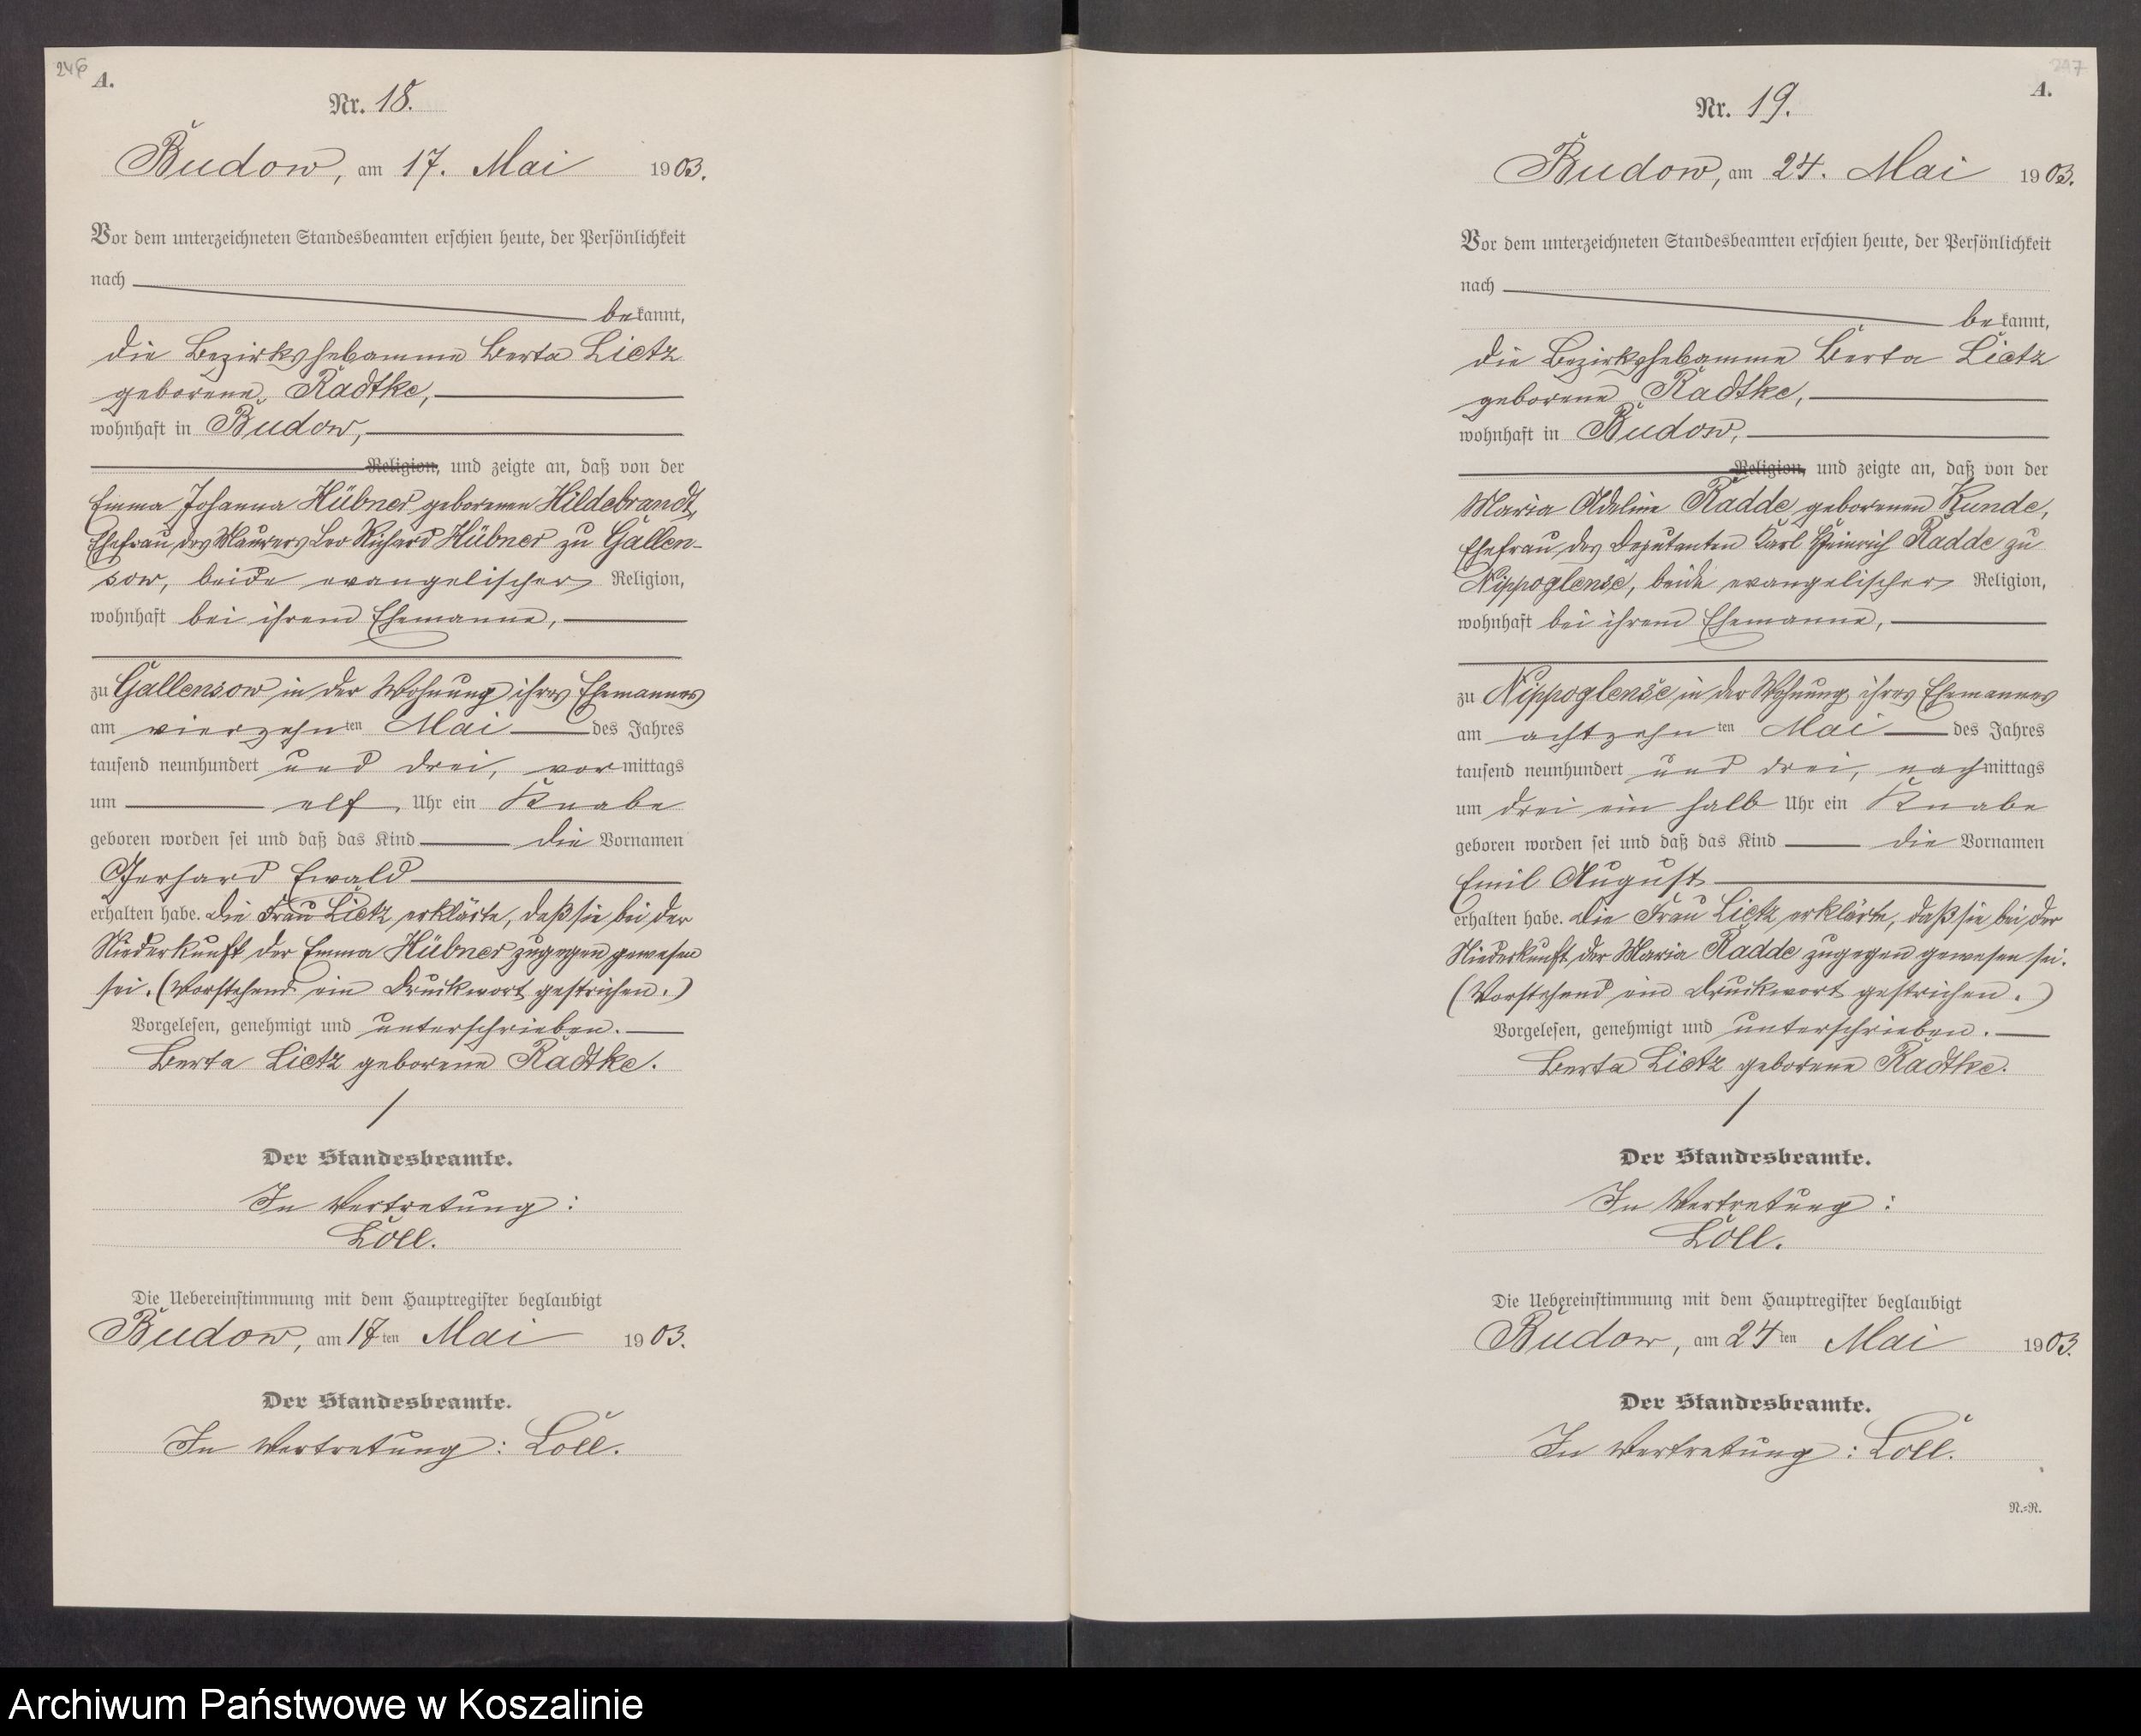 246
A.
Nr. 18.
Budow, am 17. Mai 1903.
Vor dem unterzeichneten Standesbeamten erschien heute, der Persönlichkeit
nach
bekannt,
die Bezirkshebamme Berta Lietz
geborene Radtke,
wohnhaft in Budow,
Religion, und zeigte an, daß von der
Emma Johanna Hübner geborenen Hildebrandt,
Ehefrau des Maurers Leo Richard Hübner zu Gallen-
sow, beide evangelischer Religion,
wohnhaft bei ihrem Ehemanne,
zu Gallensow in der Wohnung ihres Ehemannes
am vierzehnten Mai des Jahres
tausend neunhundert und drei, vormittags
um elf Uhr ein Knabe
geboren worden sei und daß das Kind die Vornamen
Gerhard Ewald
erhalten habe. Die Frau Lietz erklärte, daß sie bei der
Niederkunft der Emma Hübner zugegen gewesen
sei. (Vorstehend ein Druckwort gestrichen.)
Vorgelesen, genehmigt und unterschrieben.
Berta Lietz geborene Radtke.
Der Standesbeamte.
In Vertretung:
Loll.
Die Uebereinstimmung mit dem Hauptregister beglaubigt
Budow, am 17ten Mai 1903.
Der Standesbeamte.
In Vertretung: Loll.
247
A.
Nr. 19.
Budow, am 24. Mai 1903.
Vor dem unterzeichneten Standesbeamten erschien heute, der Persönlichkeit
nach
bekannt,
die Bezirkshebamme Berta Lietz
geborene Radtke,
wohnhaft in Budow,
Religion, und zeigte an, daß von der
Maria Adeline Radde geborenen Kunde,
Ehefrau des Deputanten Karl Heinrich Radde zu
Nippoglense, beide evangelischer Religion,
wohnhaft bei ihrem Ehemanne,
zu Nippoglense in der Wohnung ihres Ehemannes
am achtzehnten Mai des Jahres
tausend neunhundert und drei, nachmittags
um drei ein halb Uhr ein Knabe
geboren worden sei und daß das Kind die Vornamen
Emil August
erhalten habe. Die Frau Lietz erklärte, daß sie bei der
Niederkunft der Maria Radde zugegen gewesen sei.
(Vorstehend ein Druckwort gestrichen.)
Vorgelesen, genehmigt und unterschrieben.
Berta Lietz geborene Radtke.
Der Standesbeamte.
In Vertretung:
Loll.
Die Uebereinstimmung mit dem Hauptregister beglaubigt
Budow, am 24ten Mai 1903.
Der Standesbeamte.
In Vertretung: Loll.
N.=R.
Archiwum Państwowe w Koszalinie